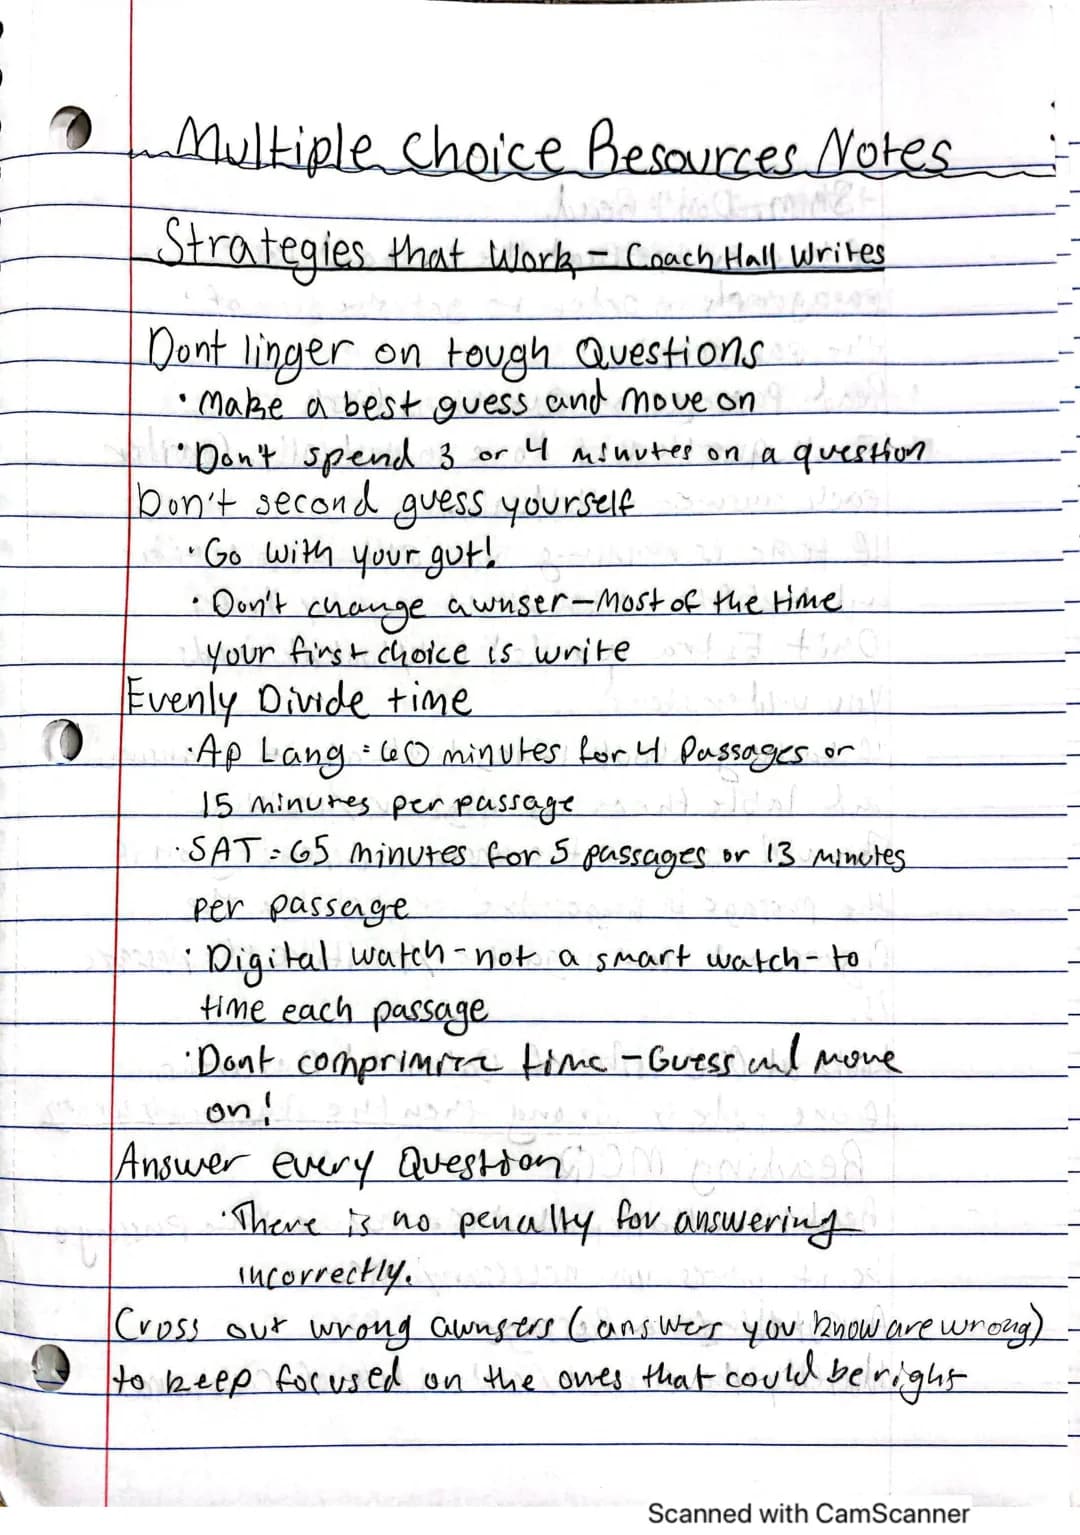 Multiple Choice Resources Notes
Strategies that Work - Coach Hall Writes
Dont linger on tough Questions
• Make a best guess and move on
• Don't spend 3 or 4 minutes on a question
Don't second guess yourself
• Go with your gut!
• Don't change awnser - Most of the time
your first choice is write
Evenly Divide time
• Ap Lang = 60 minutes for 4 Passages or
15 minutes per passage
• SAT = 65 minutes for 5 passages or 13 minutes
per passage
• Digital watch - not a smart watch - to
time each passage
• Dont time - Guess and move
on!
Answer every Question
• There is no penalty for answering
incorrectly.
Cross out wrong awnsers (answers you know are wrong)
to keep focused on the ones that could be right
Scanned with CamScanner